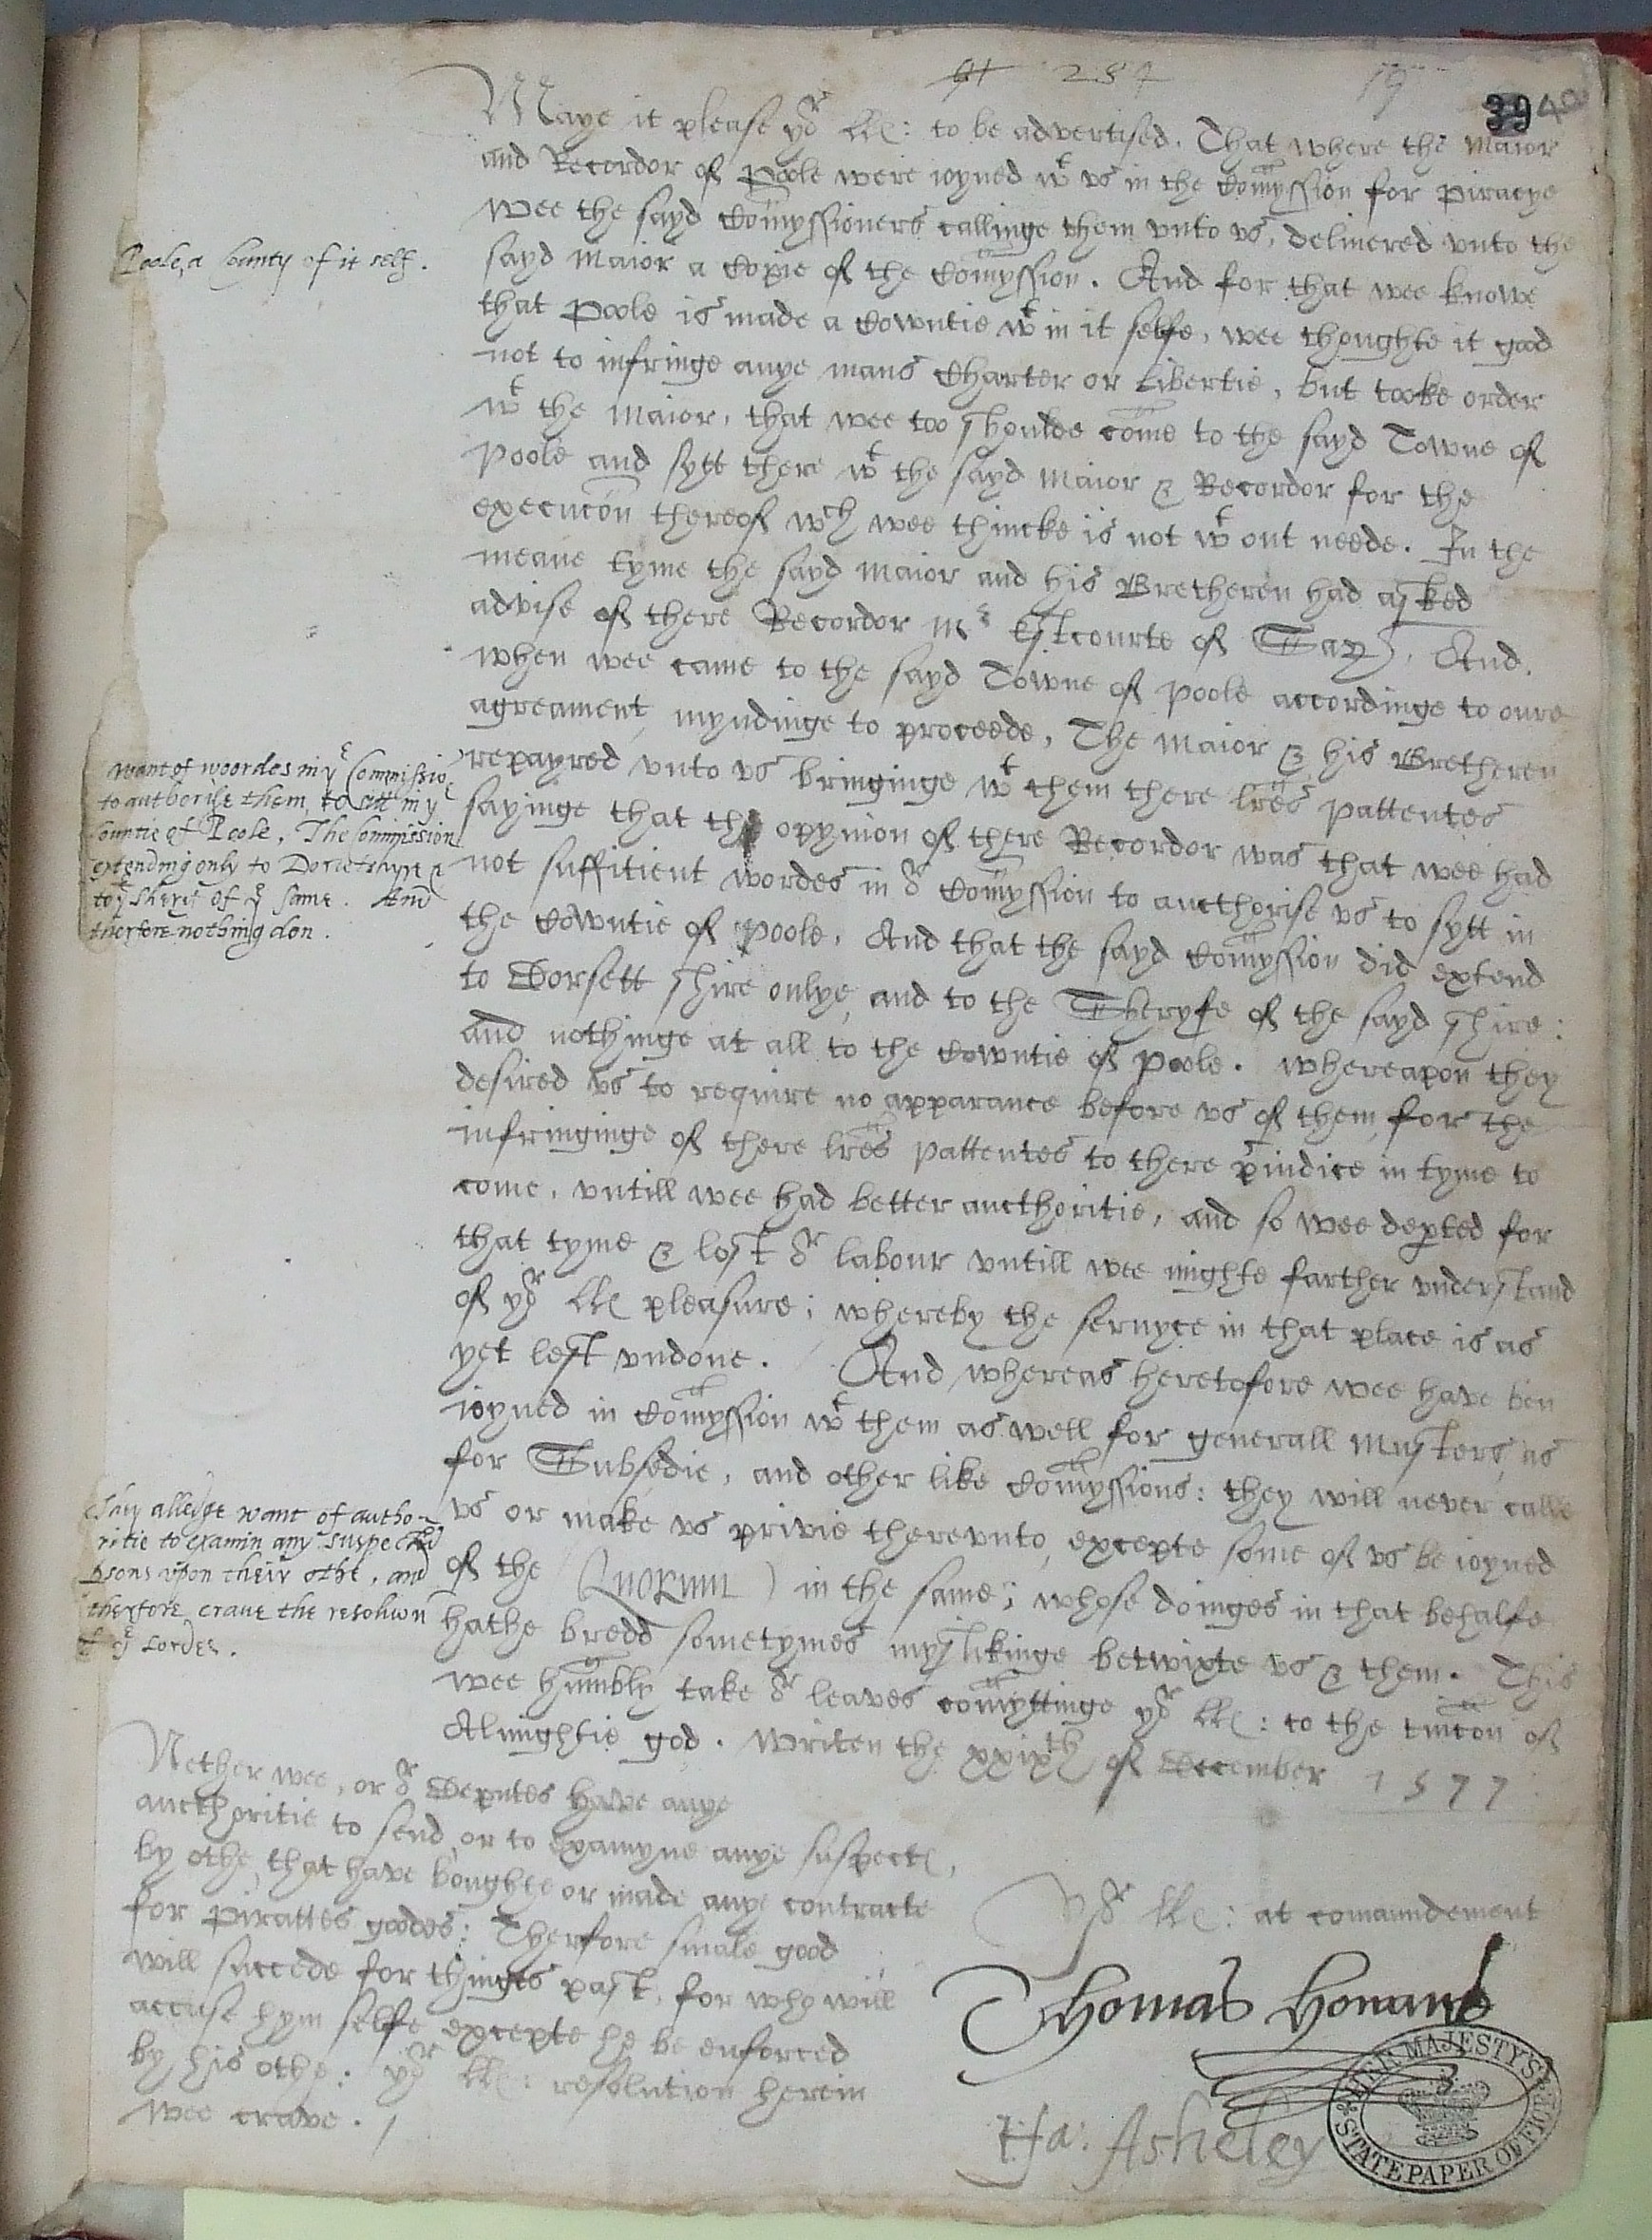 91 287 19
39 40
Maye it please yor LLs: to be advertised. That where the Maior
and Recordor of Poole were ioyned wt vs in the Comyssion for Piracye
Wee the sayd Comyssioners callinge them vnto vs, delivered vnto the
sayd Maior a Copie of the Comyssion. And for that wee knowe
that Poole is made a Cowntie wt in it selfe, wee thoughte it good
not to infringe anye mans Charter or Libertie, but tooke order
wt the Maior, that wee too shoulde come to the sayd Towne of
Poole and sytt there wt the sayd Maior & Recordor for the
execucon thereof wch wee thincke is not wt out neede. In the
meane tyme the sayd Maior and his Bretheren had asked
advise of there Recordor Mr Estcourte of And
when wee came to the sayd Towne of Poole accordinge to oure
agreament, myndinge to proceede, The Maior & his Bretheren
repayred vnto vs bringinge wt them there lres Pattentes
sayinge that the opynion of there Recordor was that wee had
not suffitient wordes in or Comyssion to aucthorise vs to sytt in
the Cowntie of Poole. And that the sayd Comyssion did extend
to Dorsett shire onlye, and to the Sheryfe of the sayd shire:
and nothinge at all to the Cowntie of Poole. Whereapon they
desired vs to require no apparance before vs of them, for the
infringinge of there lres Pattentes to there piudice in tyme to
come, vntill wee had better aucthoritie, and so wee depted for
that tyme & lost or labour vntill wee mighte farther vnderstand
of yor LLs pleasure; whereby the servyce in that place is as
yet left vndone. And whereas heretofore wee have ben
ioyned in Comyssion wt them as well for generall Musters, as
for Subsedie, and other like Comyssions: they will never calle
vs or make vs privie therevnto, excepte some of vs be ioyned
of the (Quorum) in the same; whose doinges in that behalfe
hathe bredd sometymes myslikinge betwixte vs & them. This
wee humbly take or leaves comyttinge yor LLs: to the tuicon of
Almightie god. Writen the xxixth of December 1577
Poole, a County of it self.
Want of woordes in ye Commissio
to authorise them, to sitt in ye
Countie of Poole. The Commission
extending only to Dorsetshyre &
to ye Sherif of ye same. And
therfore nothing don.
They alledge want of autho-
ritie to examin any suspected
psons vpon their othe, and
therfore crave the resolucon
of ye Lordes.
Nether wee, or or Deputes have anye
aucthoritie to send, or to examyne anye suspects,
by othe, that have boughte or made anye contracte
for Pirattes goodes: Therfore smale good
will succede for thinges past, for who will
accuse hym selfe excepte he be enforced
by his othe: yor LLs: resolution herein
wee crave.
Yor LLs: at comaundement
Thomas Howard
Ha: Asheley
HER MAJESTY'S
STATE PAPER OFFICE